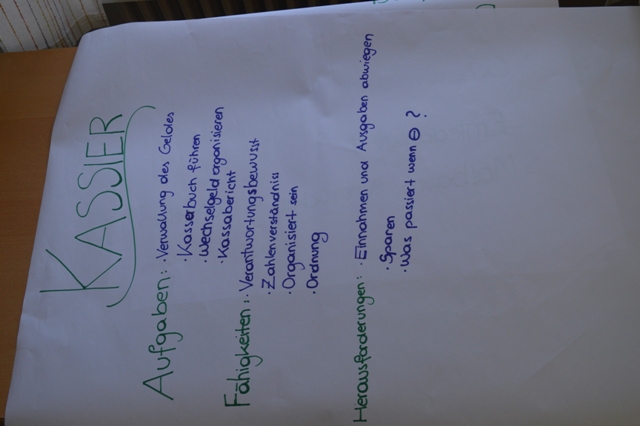 KASSIER
Aufgaben: · Verwaltung des Geldes
· Kasserbuch führen
· Wechselgeld organisieren
· Kassabericht
Fähigkeiten: · Verantwortungsbewusst
· Zahlenverständnis
· Organisiert sein
· Ordnung
Herausforderungen: · Einnahmen und Ausgaben abwiegen
· Sparen
· Was passiert wenn ⊖ ?